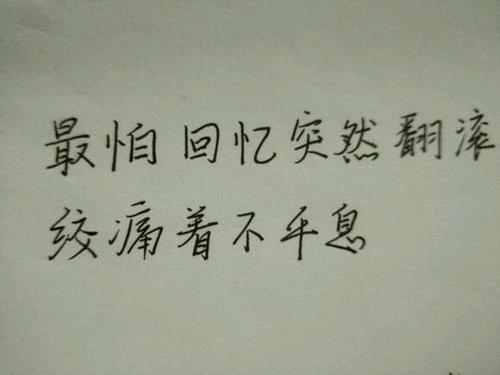 最怕回忆突然翻滚
绞痛着不平息